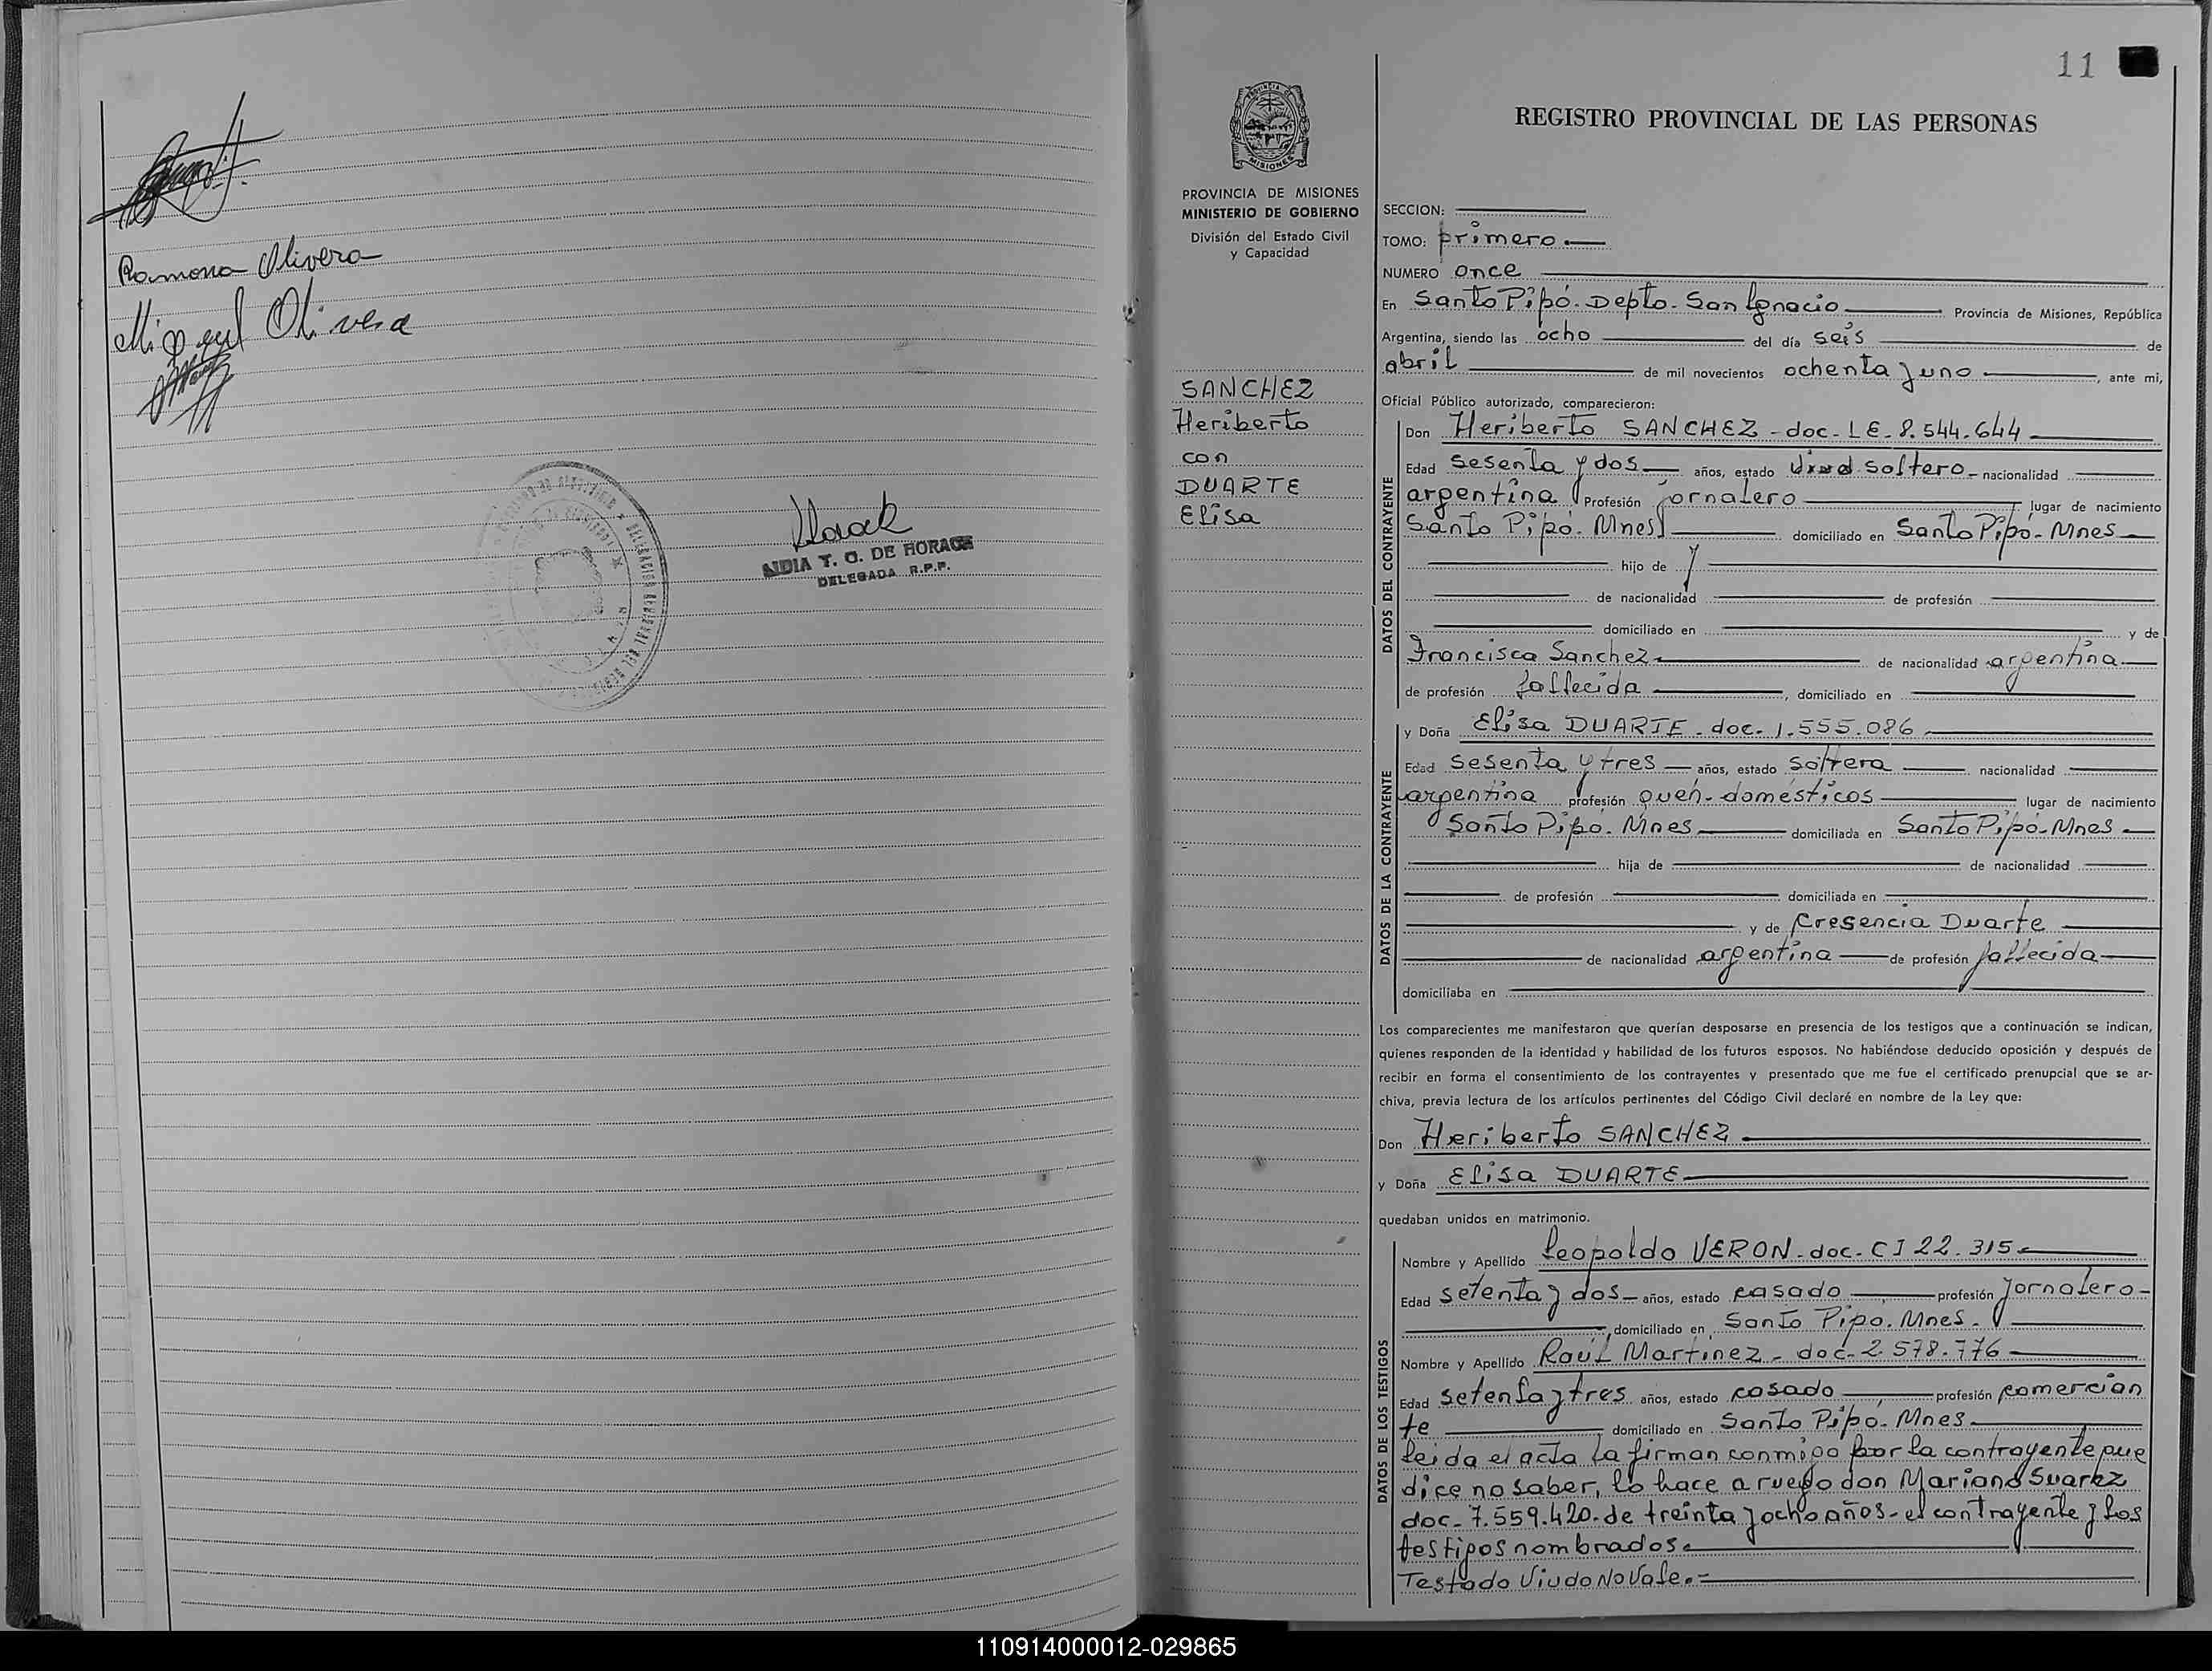 Ramona Olivera
Miguel Olivera
DE HORACK
DELEGADA R.P.P.
11
PROVINCIA DE
MISIONES
PROVINCIA DE MISIONES
MINISTERIO DE GOBIERNO
División del Estado Civil
y Capacidad
SANCHEZ
Heriberto
con
DUARTE
Elisa
REGISTRO PROVINCIAL DE LAS PERSONAS
SECCION:
TOMO: primero
NUMERO once
En Santo Pipó. Depto. San Ignacio Provincia de Misiones, República
Argentina, siendo las ocho del día seis de
abril de mil novecientos ochenta y uno, ante mi,
Oficial Público autorizado, comparecieron:
DATOS DEL CONTRAYENTE
Don Heriberto SANCHEZ - doc. LE. 8.544.644
Edad sesenta y dos años, estado soltero nacionalidad
argentina Profesión jornalero lugar de nacimiento
Santo Pipó. Mnes domiciliado en Santo Pipó. Mnes
hijo de
de nacionalidad de profesión
domiciliado en y de
Francisca Sanchez de nacionalidad argentina
de profesión fallecida, domiciliado en
DATOS DE LA CONTRAYENTE
y Doña Elisa DUARTE. doc. 1.555.086
Edad sesenta y tres años, estado soltera nacionalidad
argentina profesión queh. domésticos lugar de nacimiento
Santo Pipó. Mnes domiciliada en Santo Pipó. Mnes
hija de de nacionalidad
de profesión domiciliada en
y de Cresencia Duarte
de nacionalidad argentina de profesión fallecida
domiciliaba en
Los comparecientes me manifestaron que querían desposarse en presencia de los testigos que a continuación se indican,
quienes responden de la identidad y habilidad de los futuros esposos. No habiéndose deducido oposición y después de
recibir en forma el consentimiento de los contrayentes y presentado que me fue el certificado prenupcial que se ar-
chiva, previa lectura de los artículos pertinentes del Código Civil declaré en nombre de la Ley que:
Don Heriberto SANCHEZ
y Doña Elisa DUARTE
quedaban unidos en matrimonio.
DATOS DE LOS TESTIGOS
Nombre y Apellido Leopoldo VERON - doc. CI 22.315
Edad setenta y dos años, estado casado profesión jornalero
domiciliado en Santo Pipo. Mnes.
Nombre y Apellido Raúl Martinez - doc. 2.578.776
Edad setenta y tres años, estado casado profesión comercian
te domiciliado en Santo Pipó. Mnes
leida el acta la firman conmigo por la contrayente que
dice no saber, lo hace a ruego don Mariano Suarez
doc. 7.559.420. de treinta y ocho años - el contrayente y los
testigos nombrados.
Testado Viudo No Vale.-
110914000012-029865